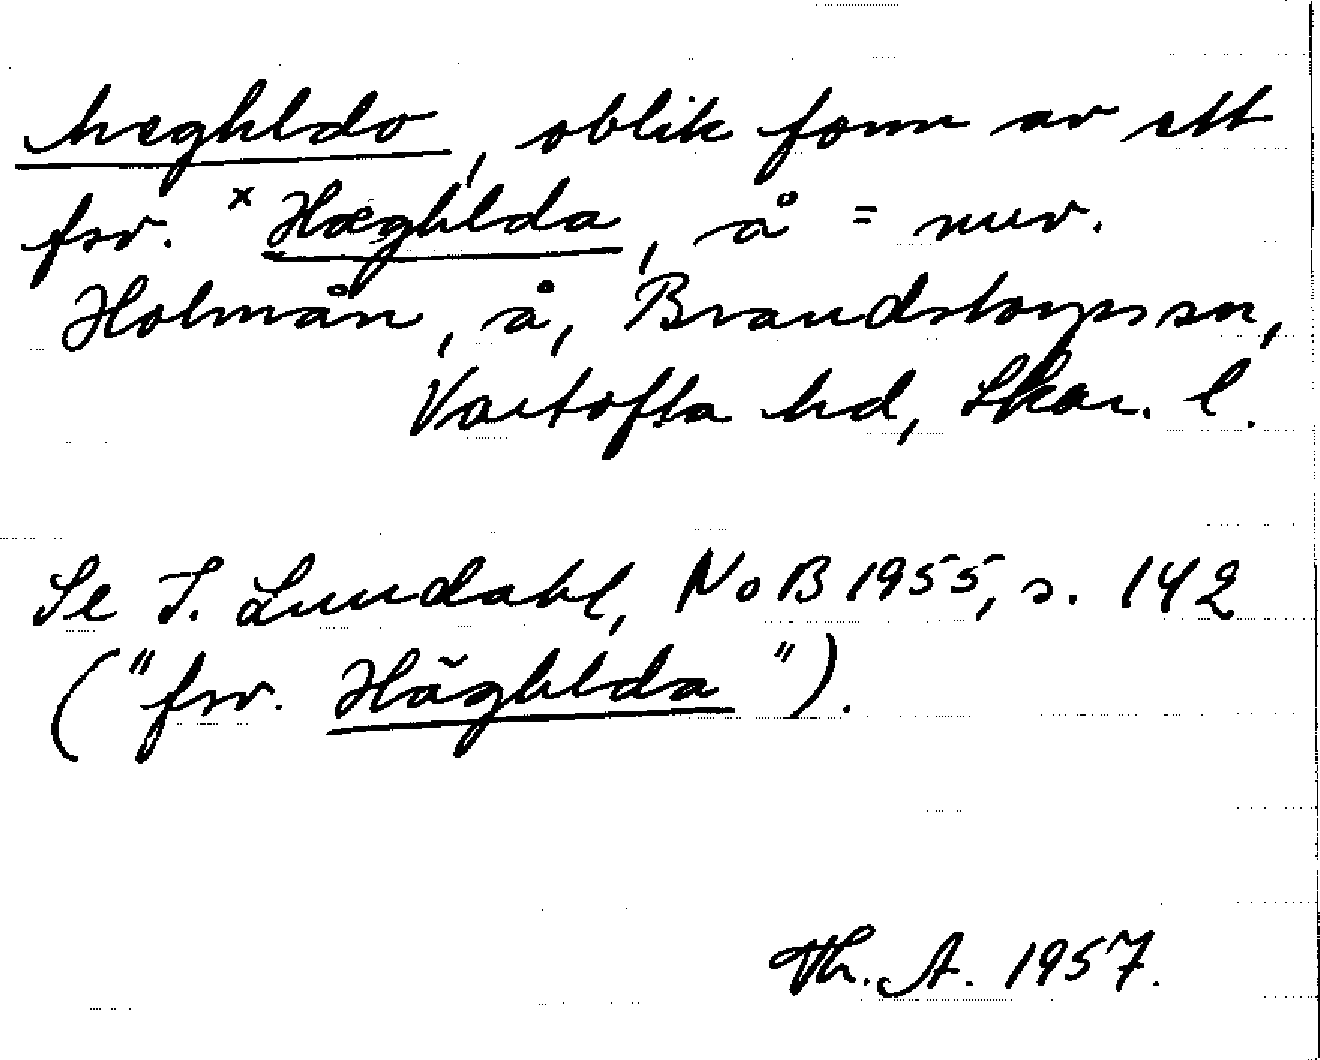 hæghldo, oblik form av ett
fsv. ˣHæghlda, å = nuv.
Holmån, å, Brandstorps sn,
Vartofta hd, Skar. l.
Se I. Lundahl, NoB 1955, s. 142
("fsv. Hǟghlda").
Th. A. 1957.